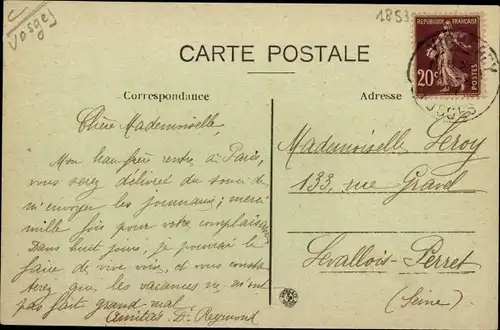 Vosges
1853
CARTE POSTALE
REPUBLIQUE FRANÇAISE
20c
POSTES
VOSGES
Correspondance
Adresse
Chère Mademoiselle,
Mon beau frère rentre à Paris,
vous serez délivrée du souci de
m'envoyer les journaux ; merci
mille fois pour votre complaisance
Dans huit jours, je pourrai le
faire de vive voix, et vous consta-
terez que les vacances ne m'ont
pas fait grand mal
Amitiés Dr Raymond
Mademoiselle Leroy
133, rue Gravel
Levallois-Perret
(Seine)